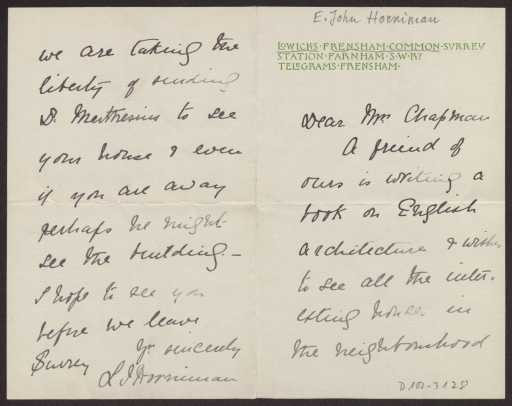 E. John Horniman
LOWICKS · FRENSHAM · COMMON · SURREY
STATION · FARNHAM · S · W · RY
TELEGRAMS · FRENSHAM ·
Dear Mrs Chapman
A friend of
ours is writing a
book on English
architecture & wishes
to see all the inter-
esting houses in
the neighbourhood
D102-3128
we are taking the
liberty of sending
Dr Muthesius to see
your house & even
if you are away
perhaps he might
see the building –
I hope to see you
before we leave
Surrey
Yrs sincerely
Horniman